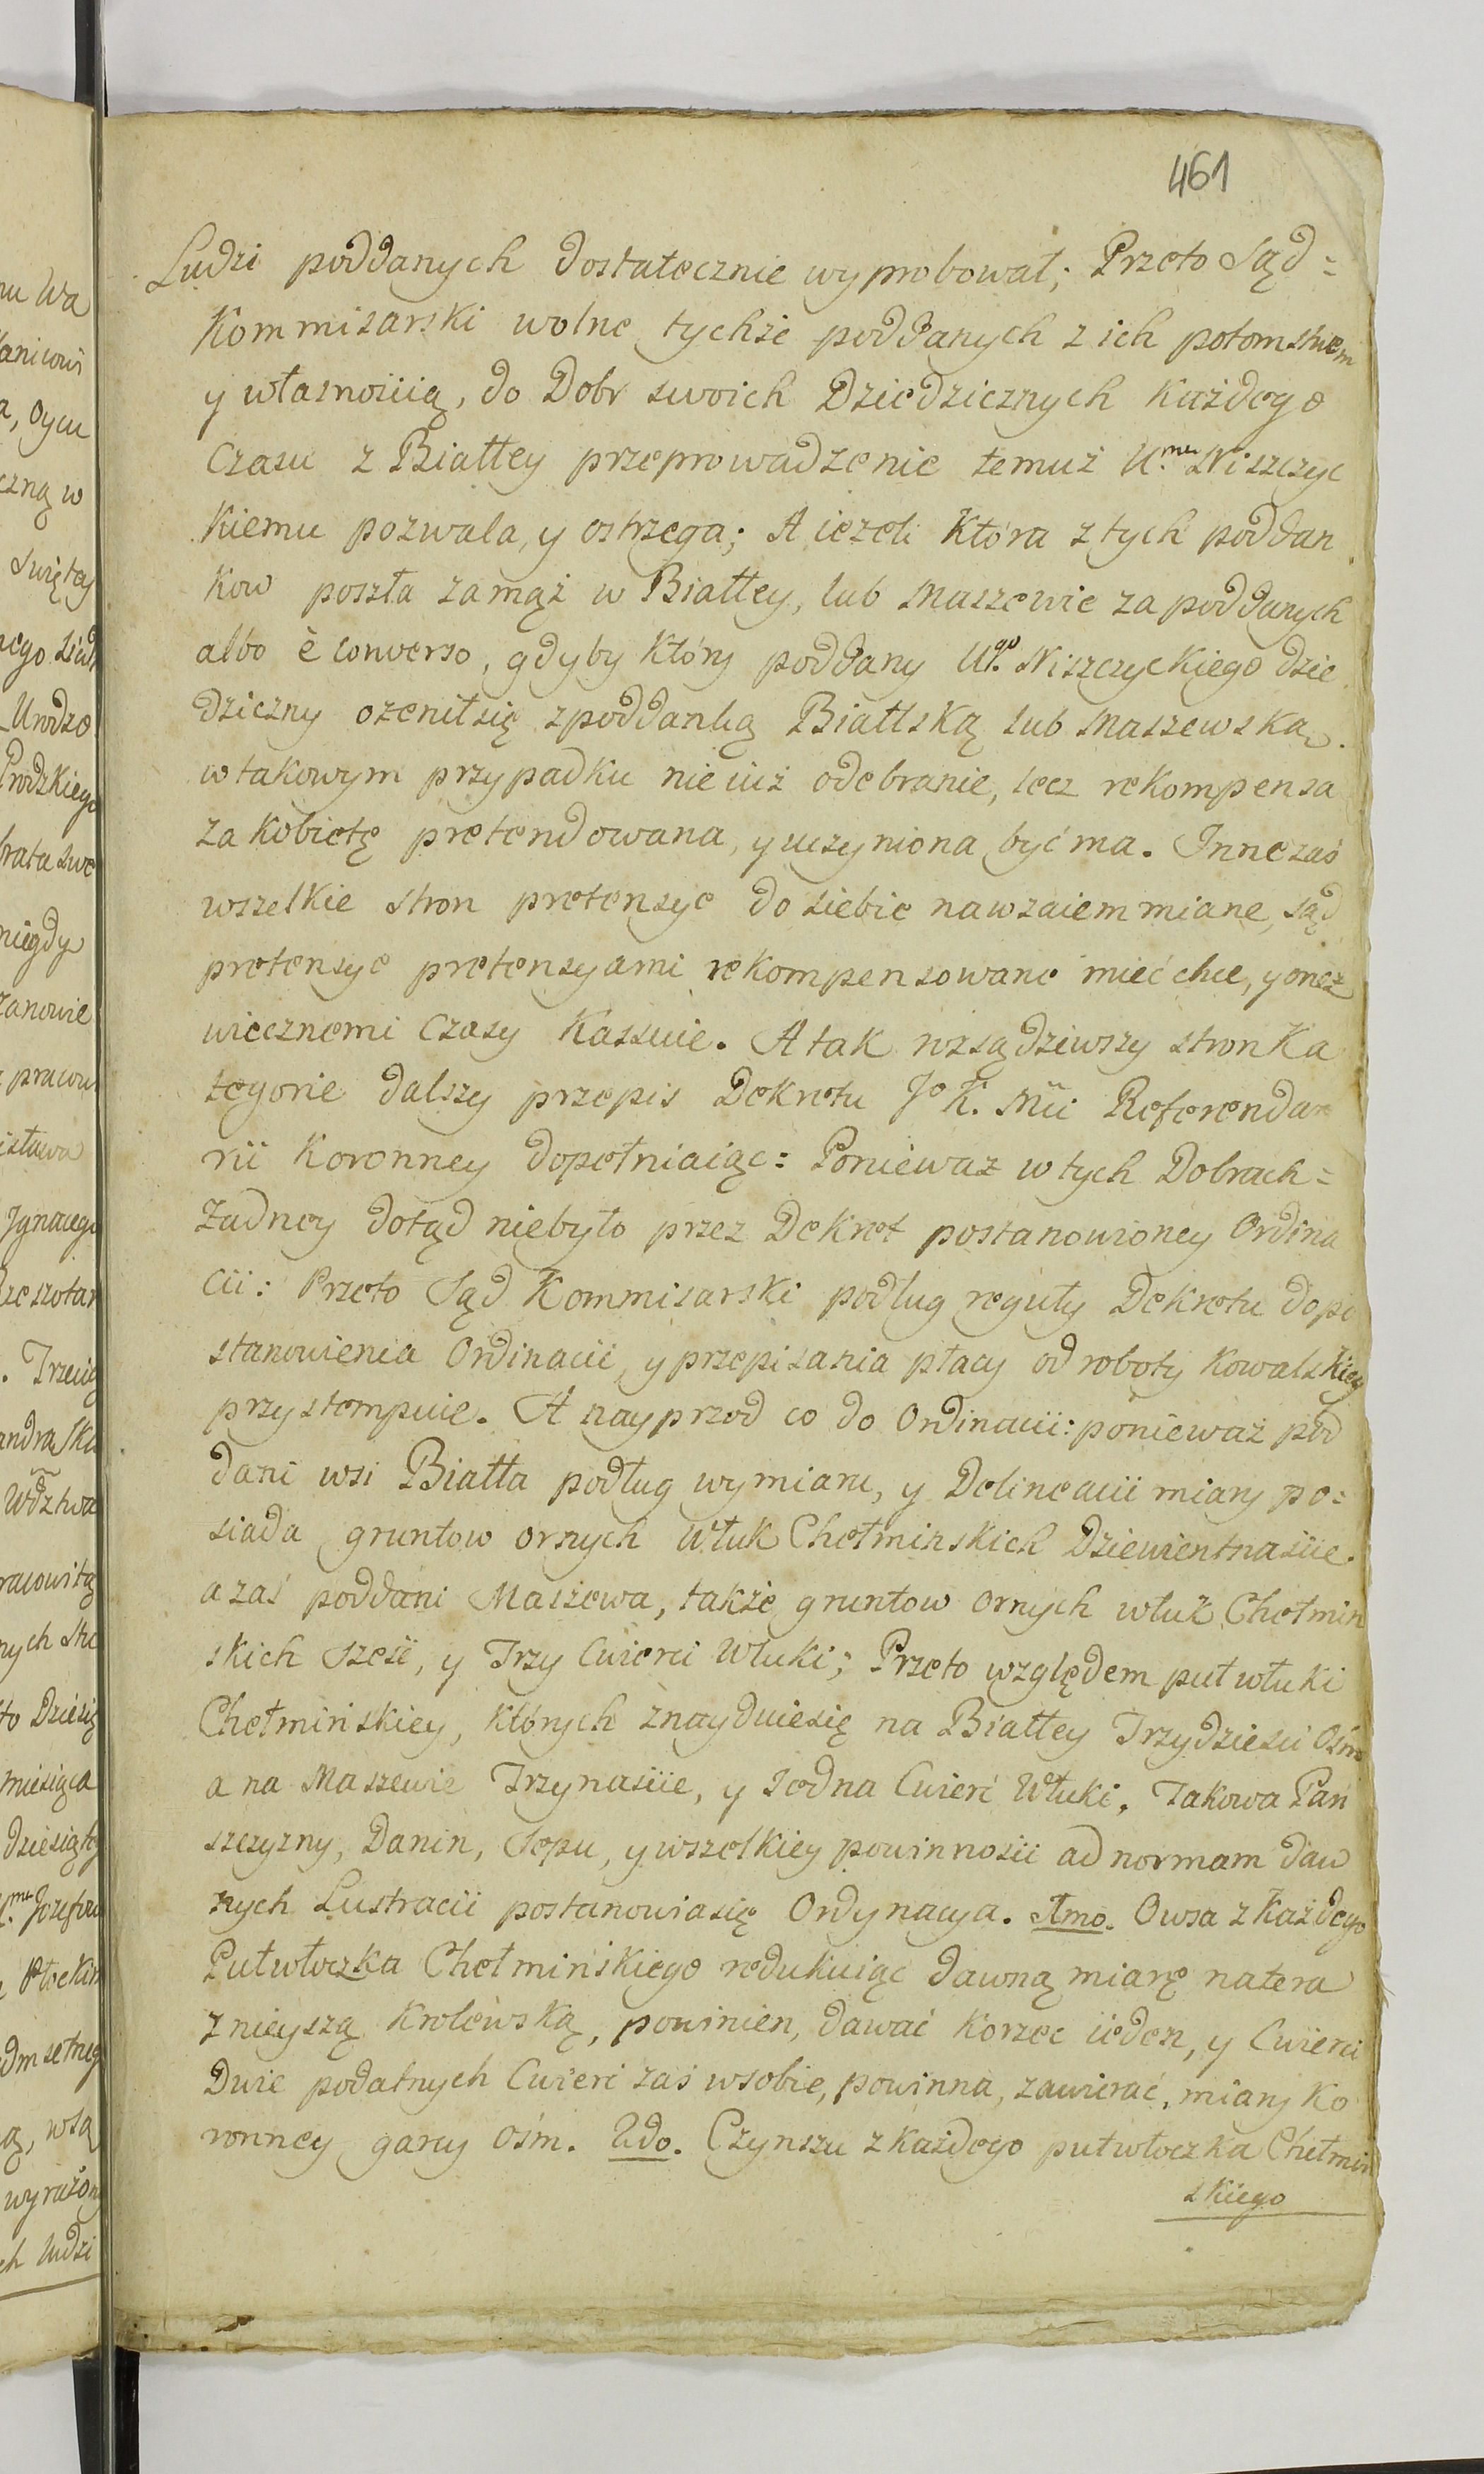 461
Ludzi poddanych dostatecznie wyprobował; Przeto Sąd=
Kommisarski wolne tychże poddanych z ich potomstwem
y własnością, do Dobr swoich Dziedzicznych Każdego
Czasu z Białłey przeprowadzenie temuż U.mu Niszczyc
Kiemu pozwala, y ostrzega; A ieżeli Która z tych poddan
Kow poszła zamąż w Białłey, lub Maszewie za poddanych
albo è converso, gdyby Który poddany Ur.go Niszczyckiego dzie
dziczny ożenił się z poddanką Białłską lub Maszewską,
w takowym przypadku nie iuż odebranie, lecz rekompensa
za Kobietę pretendowana, y uczyniona być ma. Inne zaś
wszelkie stron pretensye do siebie nawzaiem miane, sąd
pretensye pretensyami rekompensowane mieć chce, y oneż
wiecznemi Czasy Kassuie. A tak rozsądziwszy stron Ka
tegorie dalszy przepis Dekretu Je K. Mci Referenda
rii Koronney dopełniaiąc: Ponieważ w tych Dobrach=
Żadney dotąd niebyło przez Dekret postanowioney Ordina
cii: Przeto Sąd Kommisarski podług reguły Dekretu do po
stanowienia Ordinacii, y przepisania płacy od roboty Kowalskiey
przystempuie. A nayprzod co do Ordinacii: ponieważ pod
dani wsi Białła podług wymiaru, y Delineacii miary po=
siada gruntow ornych Włuk Chełminskich Dziewientnaście
a zaś poddani Maszewa, także gruntow ornych włuk Chełmin
skich sześć, y Trzy Cwierci Włuki; Przeto względem puł włuki
Chełmińskiey, których znayduie się na Białłey Trzydzieści Ośm
a na Maszewie Trzynaście, y Jedna Cwierć Włuki, Takowa Pań
szczyzny, Danin, Sepu, y wszelkiey powinności ad normam daw
nych Lustracii postanowia się Ordynacya. 1mo. Owsa z Każdego
Pułwłoczka Chełmińskiego redukuiąc dawną miarę na tera
znieyszą Krolewską, powinien, dawać Korzec ieden, y Cwierci
Dwie podatnych Cwierć zaś w sobie, powinna, zawierać, miary Ko
ronney garcy Ośm. 2do. Czynszu z każdego pułwłoczka Chełmin
skiego